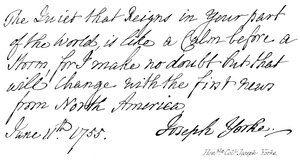 The Quiet that Reigns in Your part
of the World, is like a Calm before a
Storm, for I make no doubt but that
will Change with the first news
from North America
June 11th 1755. Joseph Yorke.
Honble. Coll. Joseph Yorke